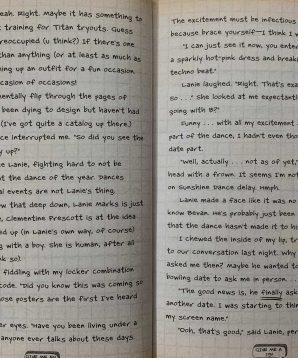 eah. Right. Maybe it has something to
training for Titan tryouts. Guess
reoccupied (u think?) If there's one
than anything (or at least as much as
ing up an outfit for a fun occasion.
casion of occasions!
entally flip through the pages of
been dying to design but haven't had
(I've got quite a catalog up there.)
ce interrupted me. "So did you see the
y up?"
e Lanie, fighting hard to not be
ut the dance of the year. Dances
al events are not Lanie's thing.
w that deep down, Lanie Marks is just
, Clementine Prescott is at the idea
ed up (in Lanie's own way, of course)
g with a boy. She is human, after all
nk so).
fiddling with my locker combination
code. "Did you know this was coming so
hose posters are the first I've heard
er eyes. "Have you been living under a
anyone ever talks about these days.
GIVE ME AN
The excitement must be infectious
because brace yourself—I think I w
"I can just see it now, you enter
a sparkly hot-pink dress and break
techno beat."
Lanie laughed. "Right. That's exa
so . . ." She looked at me expectantl
going with B?"
Funny . . . with all my excitement
part of the dance, I hadn't even tho
date part.
"Well, actually . . . not as of yet,"
head with a frown. It seems I'm not
on Sunshine Dance delay. Hmph.
Lanie made a face like it was no
know Bevan. He's probably just been
that the dance hasn't made it to hi
I chewed the inside of my lip, tr
to our conversation last night. Why
asked me then? Maybe he wanted to
Bowling date to ask me in person. .
"The good news is, he finally ask
another date. I was starting to thin
my screen name."
"Ooh, that's good," said Lanie, per
GIVE ME A